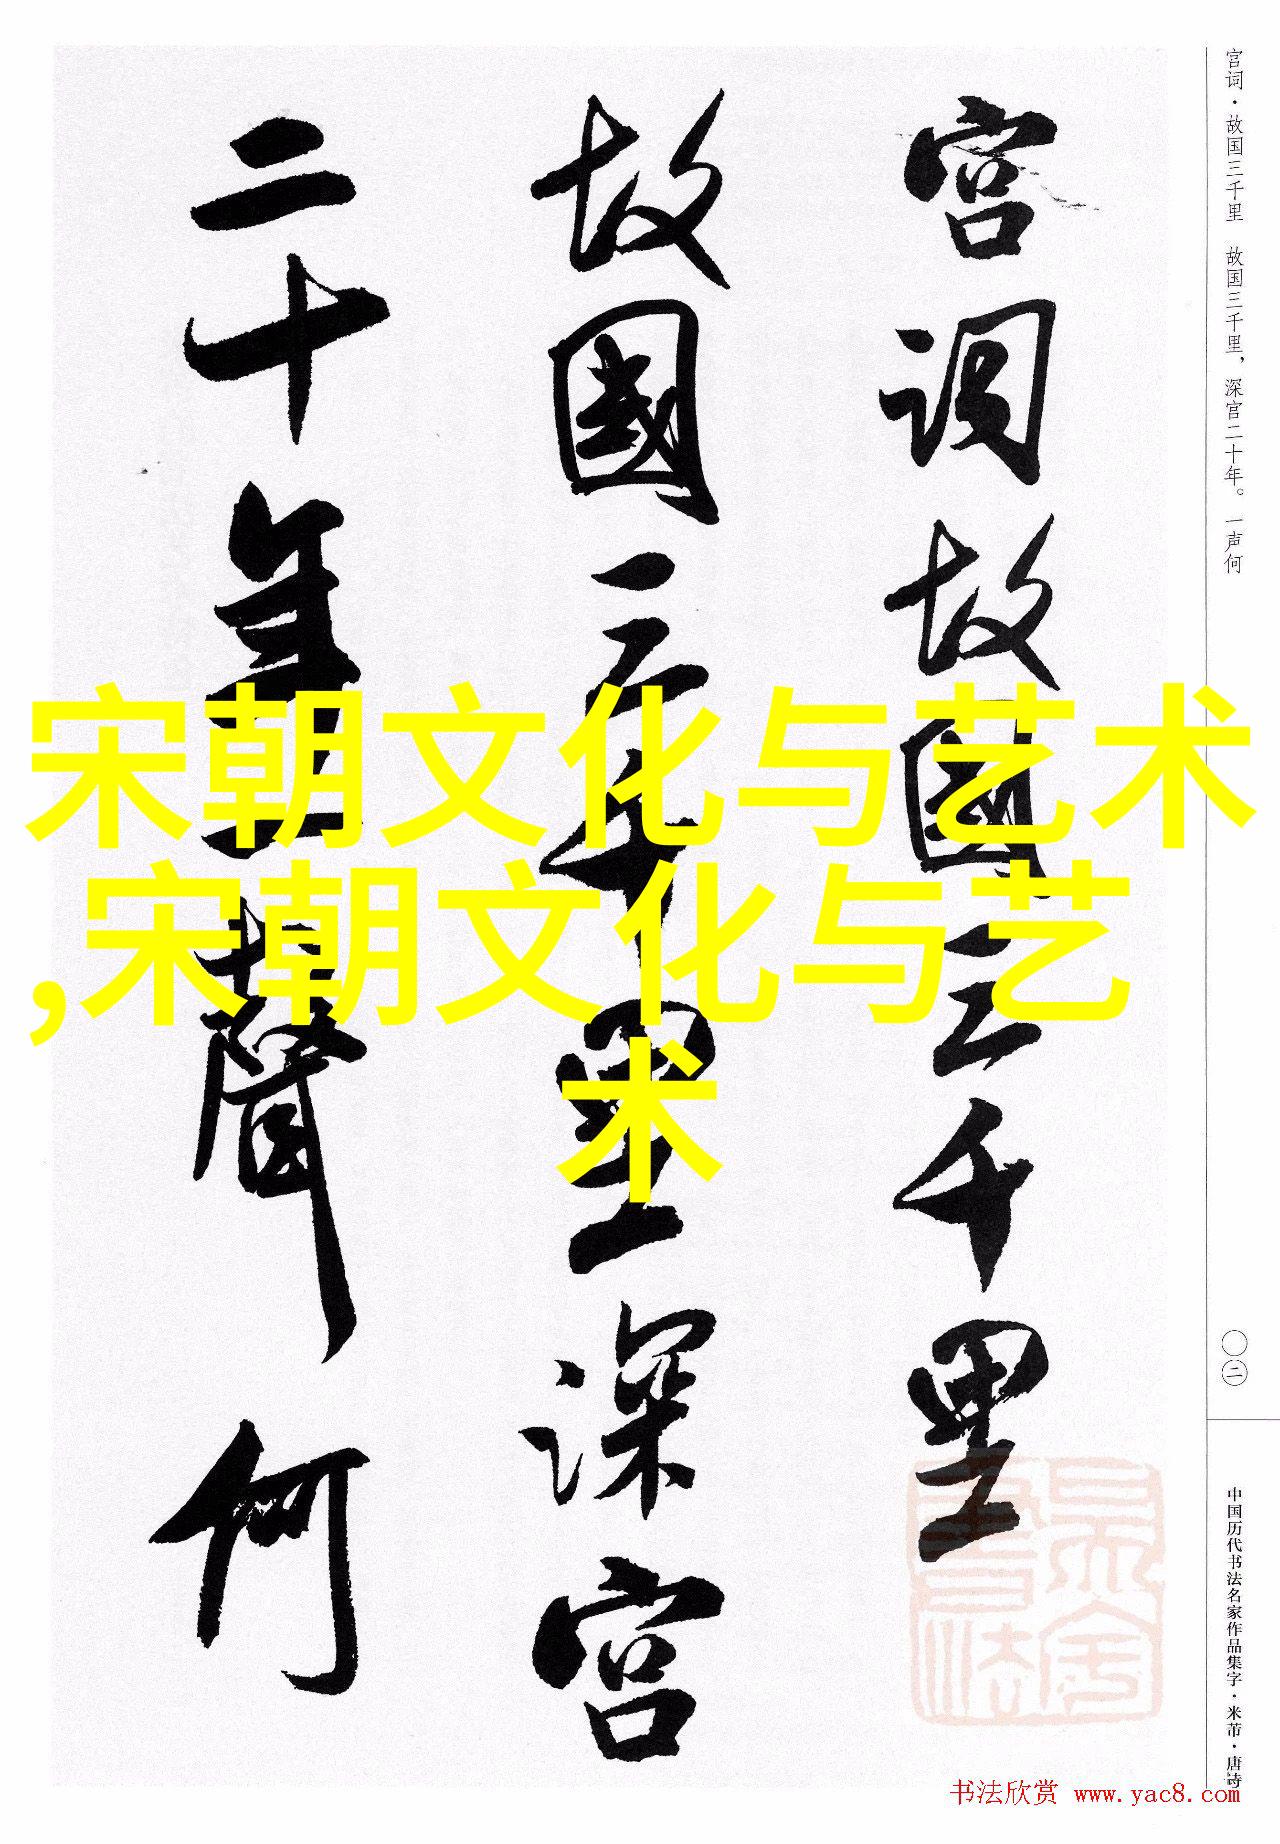 宫词·故国三千里　故国三千里，深宫二十年。一声何
宫词故國三千里
故國三千里深宫
二十年一聲何
宋朝文化与艺术
,宋朝文化与艺
术
〇二
中国历代书法名家作品集字·米芾·唐诗
书法欣赏 www.yac8.com